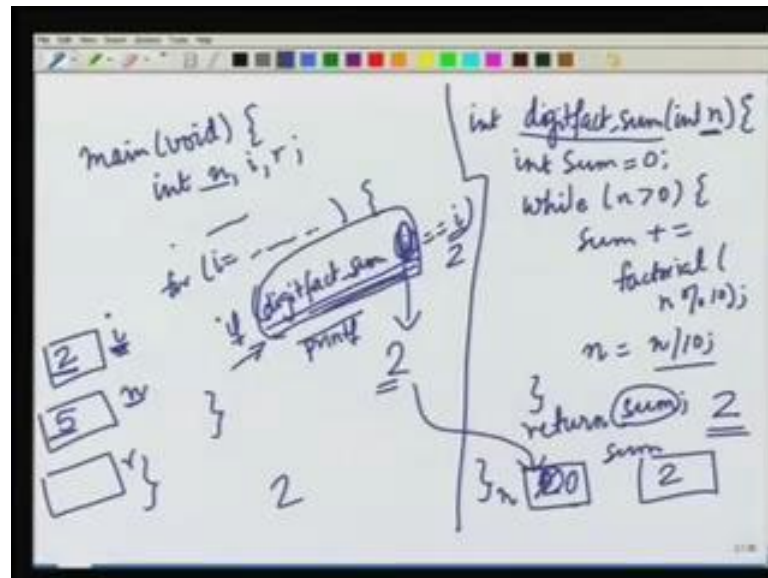 main(void) {
int n, i, r;
for (i= ------ ) {
if (digitfact_sum(i) == i)
2
printf
2
}
}
2 i
5 n
r
2
int digitfact_sum(int n) {
int sum=0;
while (n>0) {
sum +=
factorial (
n%10);
n = n/10;
}
return (sum); 2
}
n 0
sum 2